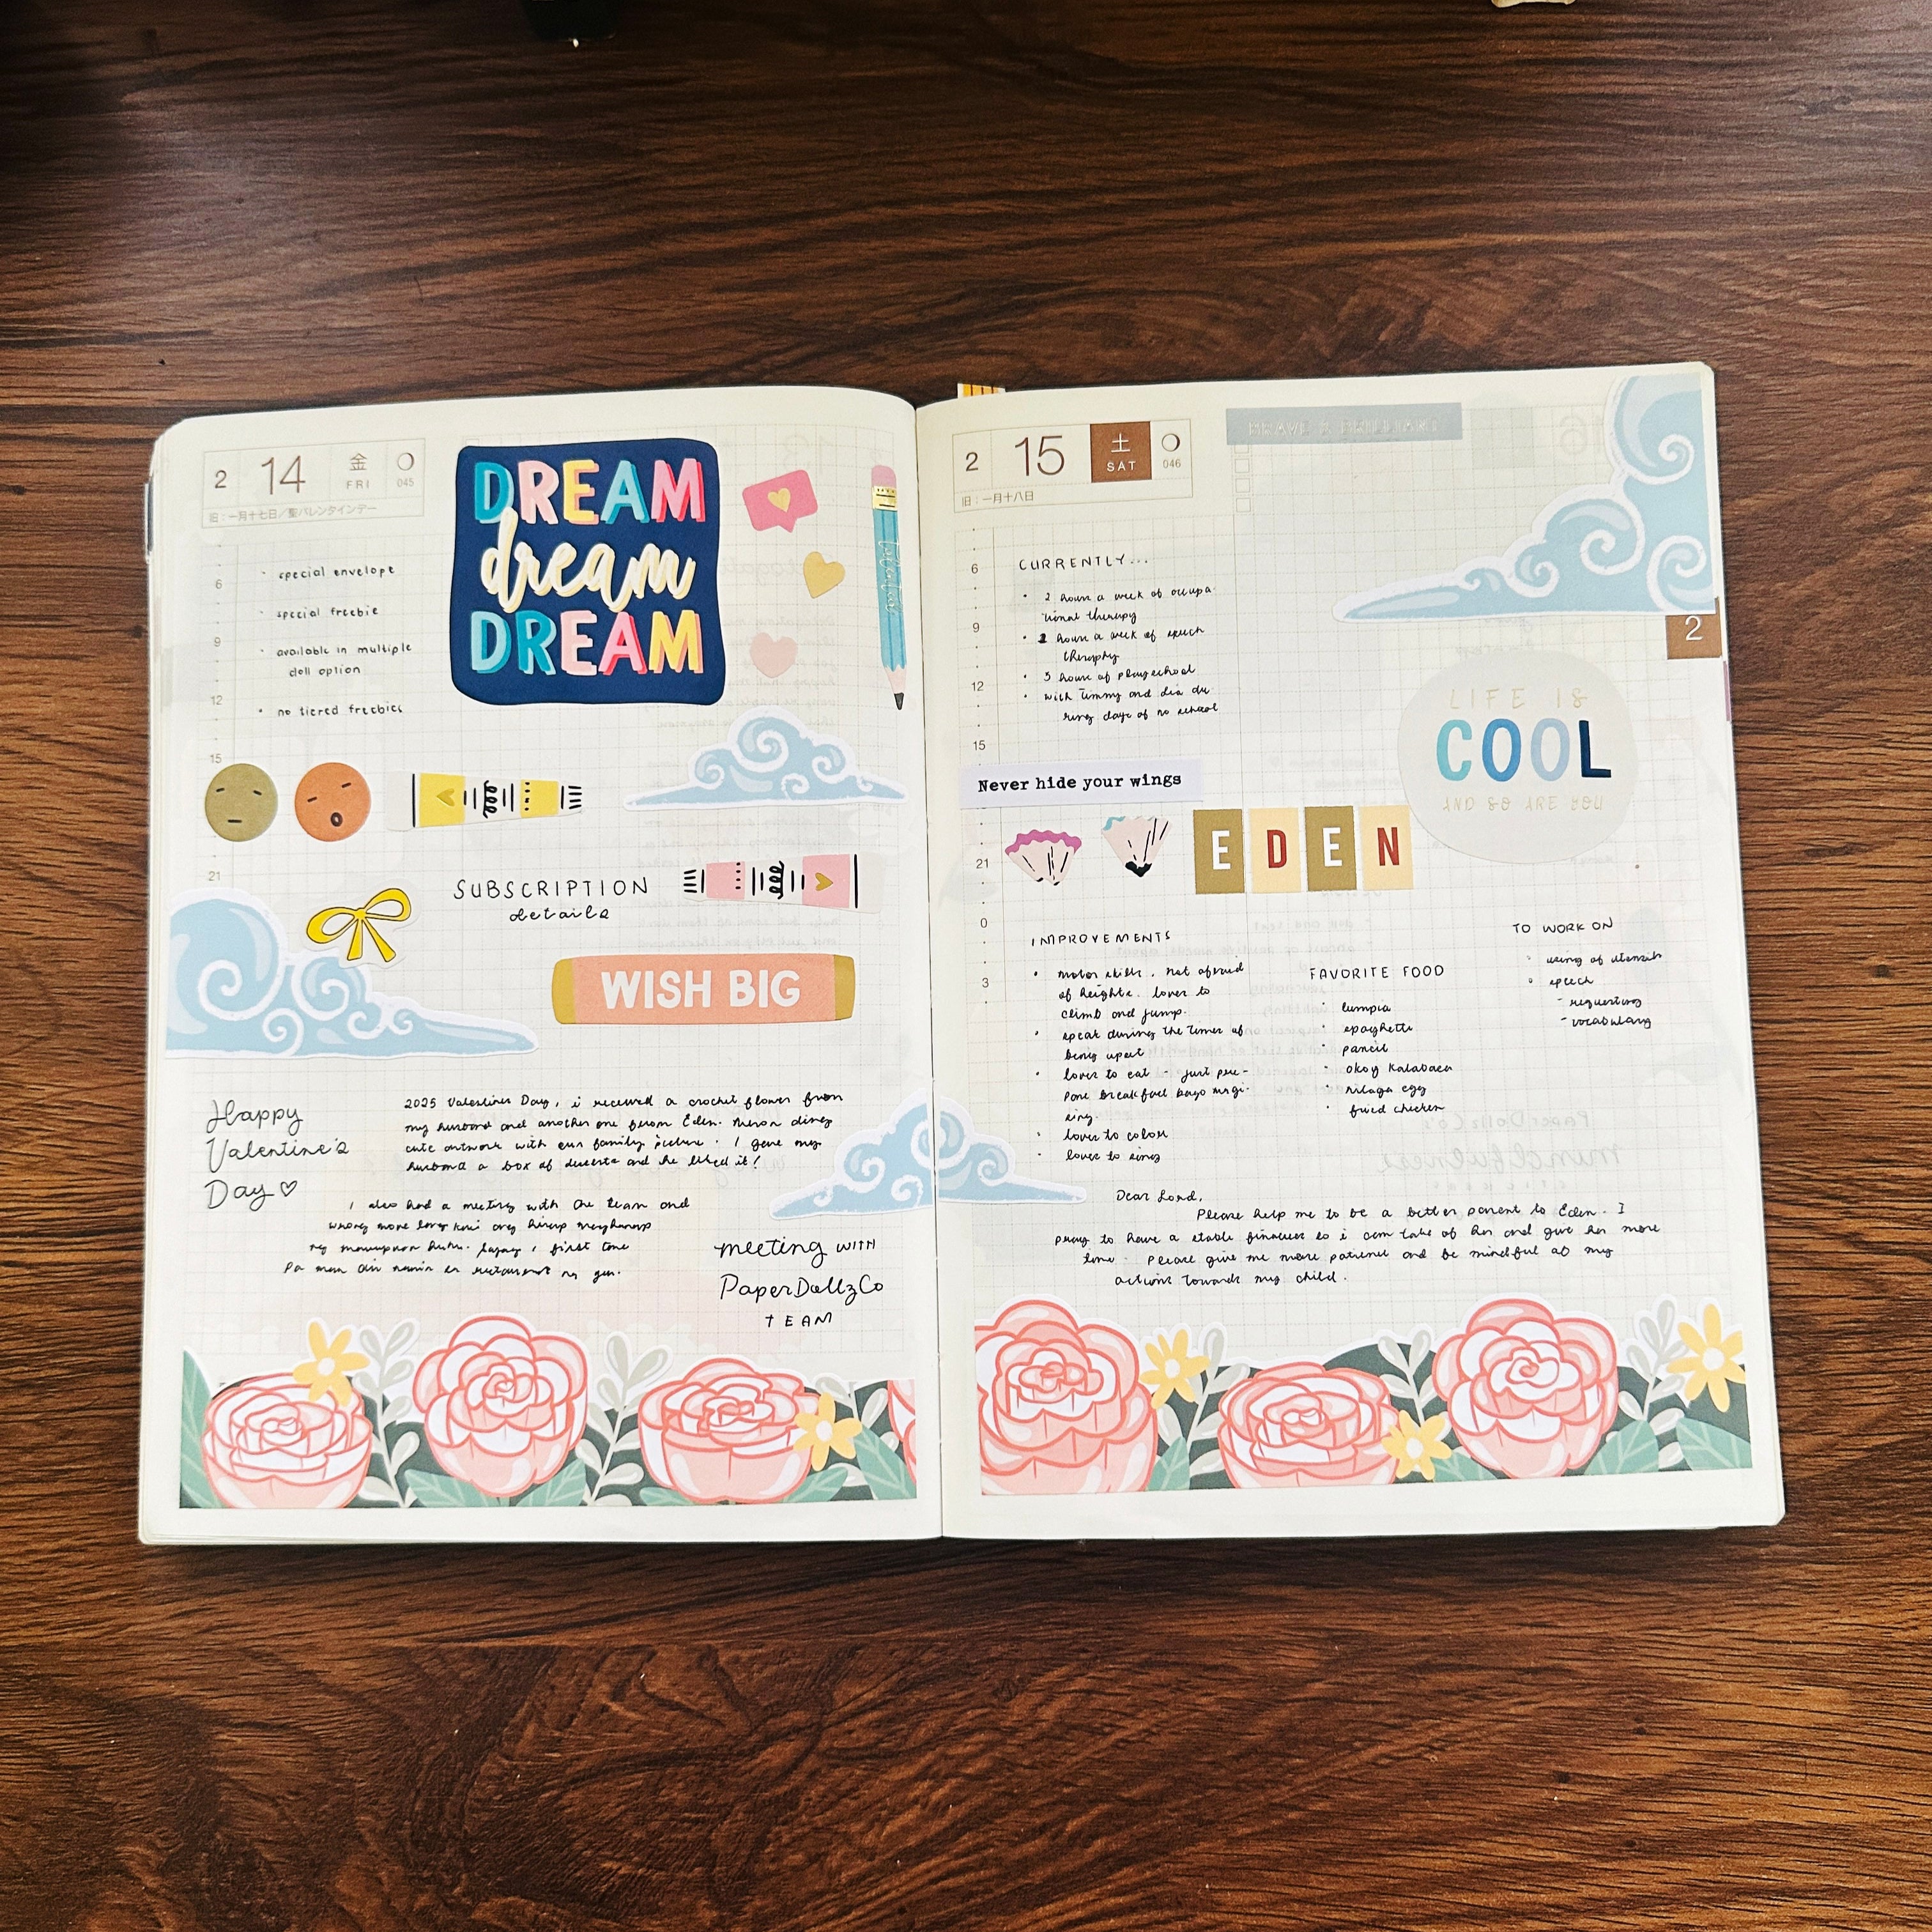 2 14 金 FRI 045
旧:一月十七日/聖バレンタインデー
DREAM
dream
DREAM
6
9
12
15
21
special envelope
special freebie
available in multiple
doll option
no tiered freebies
SUBSCRIPTION
details
WISH BIG
Happy
Valentine's
Day
2025 Valentines Day, i received a crochet flower from
my husband and another one from Eden. Meron ding
cute artwork with our family picture. I gave my
husband a box of desserts and he liked it!
I also had a meeting with the team and
first time
pa man din namin sa restaurant na yun.
meeting WITH
PaperDollzCo
TEAM
2 15 土 SAT 046
旧:一月十八日
BRAVE & BRILLIANT
6
9
12
15
21
0
3
CURRENTLY...
2 hours a week of occupa
tional therapy
2 hours a week of speech
theraphy
3 hours of playschool
with Timmy and dia du
ring days of no school
2
LIFE IS
COOL
AND SO ARE YOU
Never hide your wings
EDEN
IMPROVEMENTS
motor skills. not afraid
of heights. loves to
climb and jump.
speak during the times of
being upset
loves to eat - just pre-
pare breakfast bago magi-
sing.
loves to color
loves to sing
FAVORITE FOOD
lumpia
spaghetti
pancit
okoy kalabasa
nilaga egg
fried chicken
TO WORK ON
using of utensils
speech
- requesting
- vocabulary
Dear Lord,
Please help me to be a better parent to Eden. I
pray to have a stable finances so i can take of her and give her more
time. Please give me more patience and be mindful of my
actions towards my child.